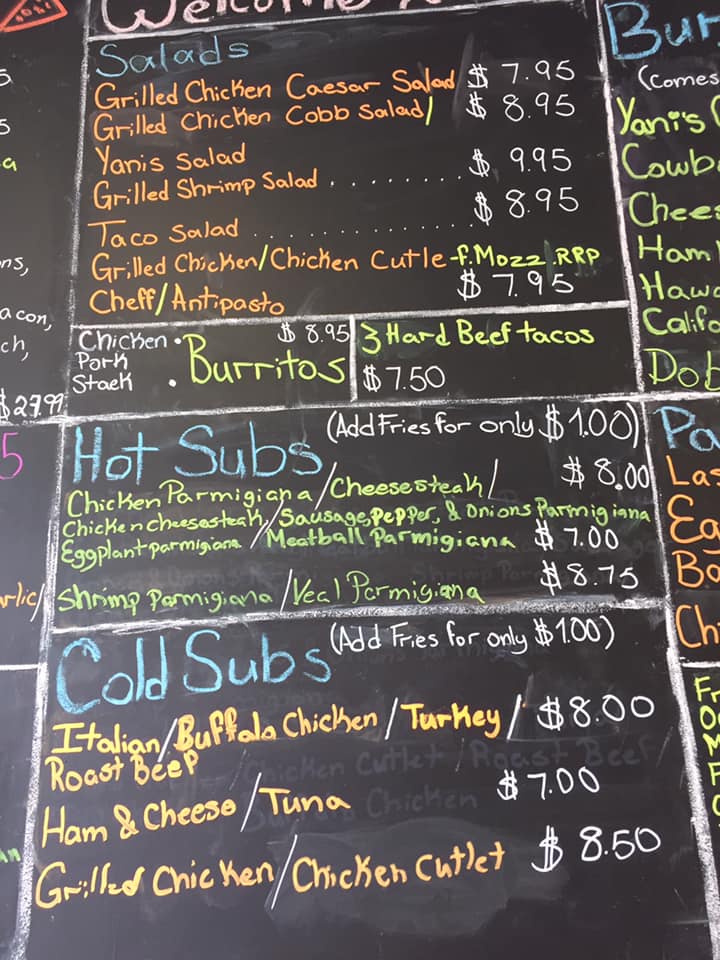 Welcome
Salads
Grilled Chicken Caesar Salad $ 7.95
Grilled Chicken Cobb Salad/ $ 8.95
Yanis Salad $ 9.95
Grilled Shrimp Salad ........
$ 8.95
Taco Salad ....................
Grilled Chicken/Chicken Cutle f.Mozz.RRP
Cheff/Antipasto $ 7.95
Chicken • $ 8.95
Pork
Staek •
Burritos
3 Hard Beef tacos
$7.50
Hot Subs (Add Fries for only $1.00)
Chicken Parmigiana/Cheesesteak/ $ 8.00
Chicken cheesesteak, Sausage, pepper, & Onions Parmigiana
Eggplant parmigiana /Meatball Parmigiana $ 7.00
$ 8.75
Shrimp Parmigiana/Veal Parmigiana
Cold Subs (Add Fries for only $1.00)
Italian/Buffalo Chicken/Turkey/ $8.00
Roast Beef
Ham & Cheese/Tuna $ 7.00
Grilled Chicken/Chicken Cutlet $ 8.50
acon,
$27.99
5
Bur
(Comes
Yani's
Cowb
Chee
Ham
Hawa
Califo
Dob
Pa
Las
Ea
Ba
Ch